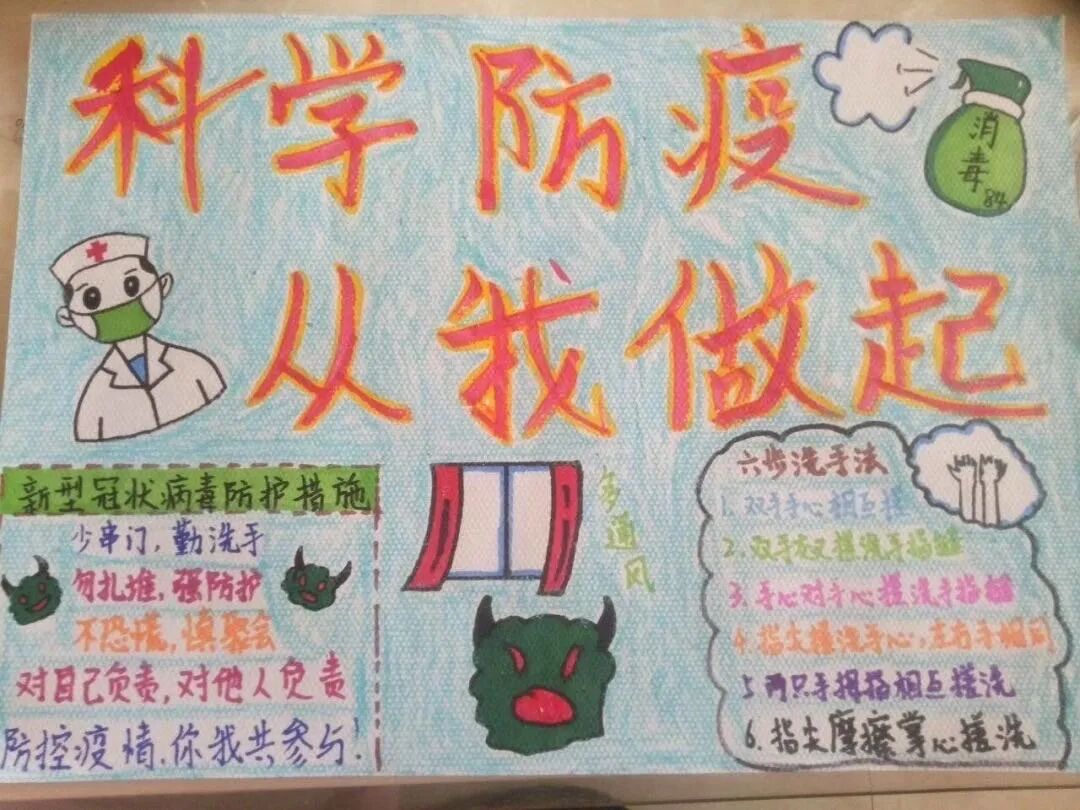 科学防疫
消毒
84
从我做起
新型冠状病毒防护措施
少串门,勤洗手
勿扎堆,强防护
不恐慌,慎聚会
对自己负责,对他人负责
防控疫情,你我共参与!
多通风
六步洗手法
1.双手手心相互搓
2.双手交叉搓洗手指缝
3.手心对手心搓洗手指缝
4.指尖搓洗手心,左右手相同
5.两只手拇指相互搓洗
6.指尖摩擦掌心搓洗